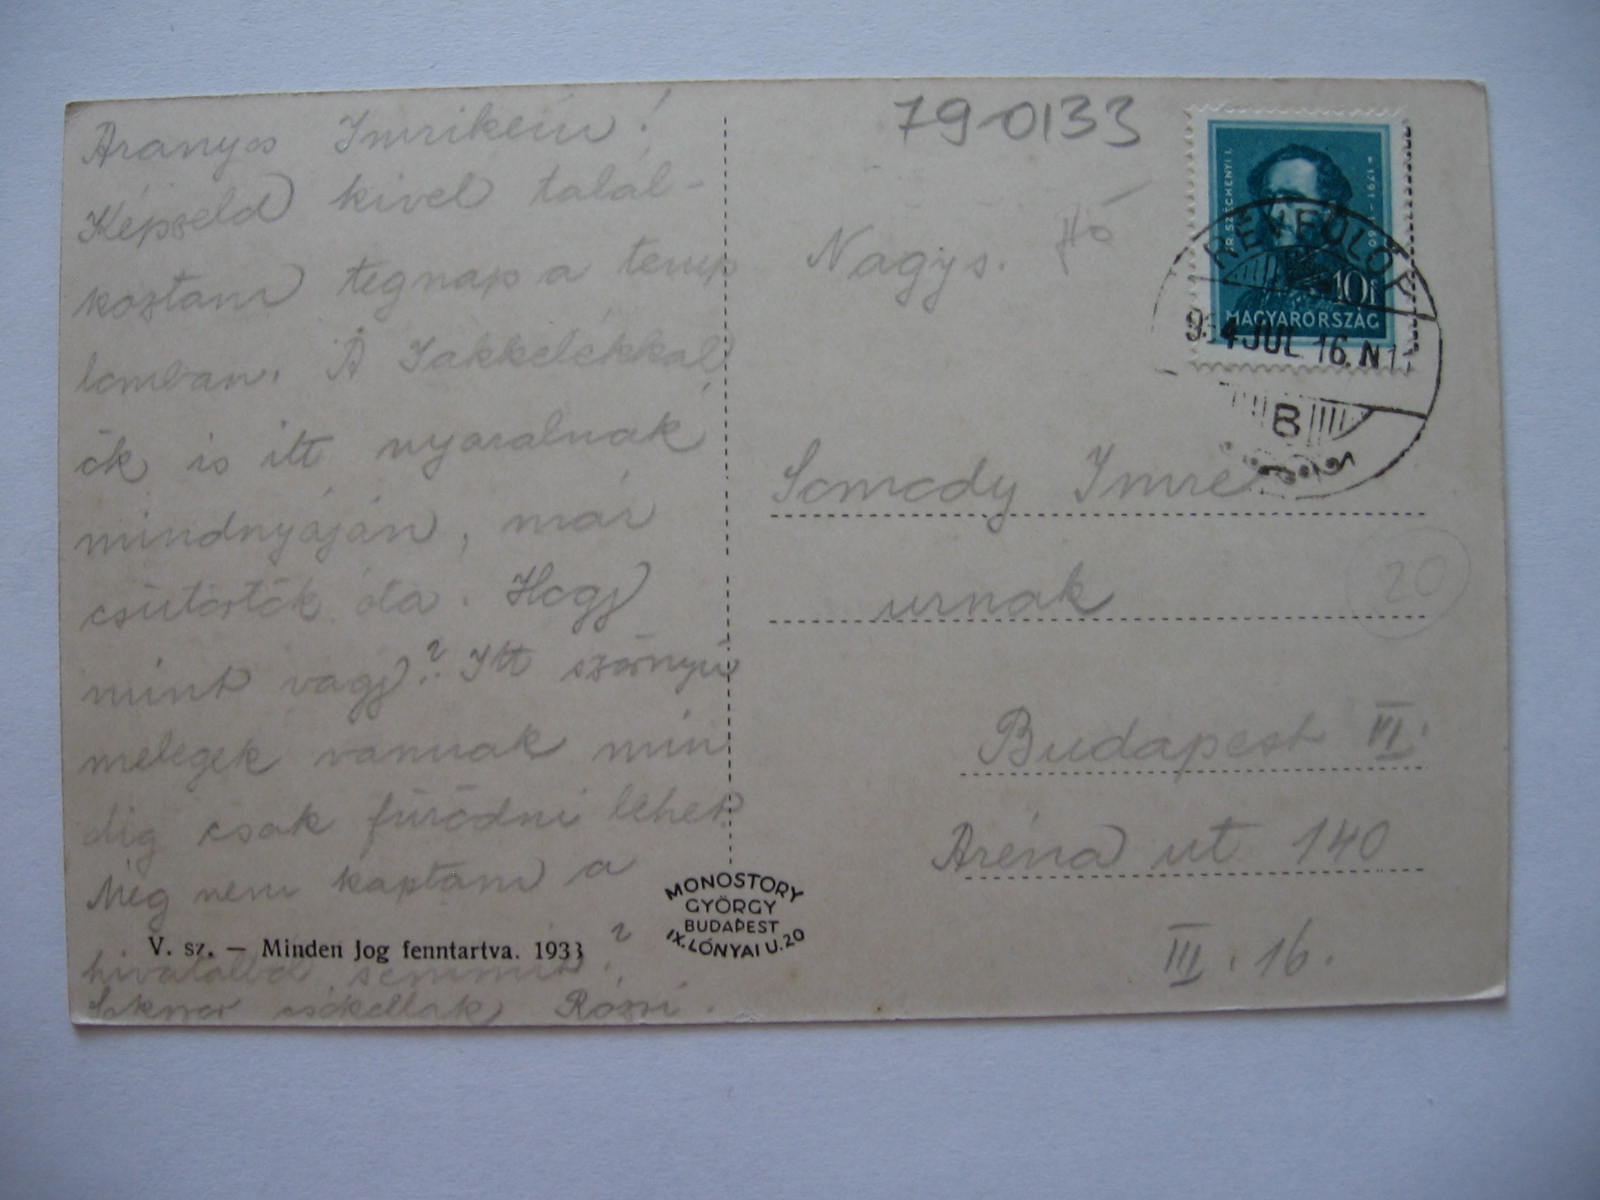 Aranyos Imrikém!
Képzeld kivel talál-
koztam tegnap a temp
lomban. A Jakkelékkal
ők is itt nyaralnak
mindnyáján, már
csütörtök óta. Hogy
mint vagy? Itt szörnyű
melegek vannak min
dig csak fürödni lehet
Még nem kaptam a
hivatalból semmit?
Sokszor csókollak Rózsi.
V. sz. — Minden Jog fenntartva. 1933
MONOSTORY
GYÖRGY
BUDAPEST
IX. LÓNYAI U. 20
79-0133
Nagys.
Somody Imre
urnak
20
Budapest VI.
Aréna ut 140
III. 16.
GR SZÉCHENYI I.
10f
MAGYARORSZÁG
RÉVFÜLÖP
934 JUL 16. N1
B